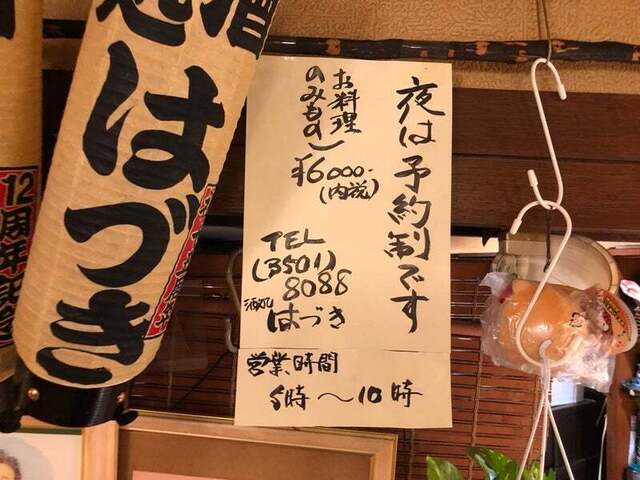 夜は予約制です
お料理
のみもの
¥6000-
(内税)
TEL
(3501)
8088
酒処 はづき
営業時間
5時〜10時
酒処はづき
12周年記念